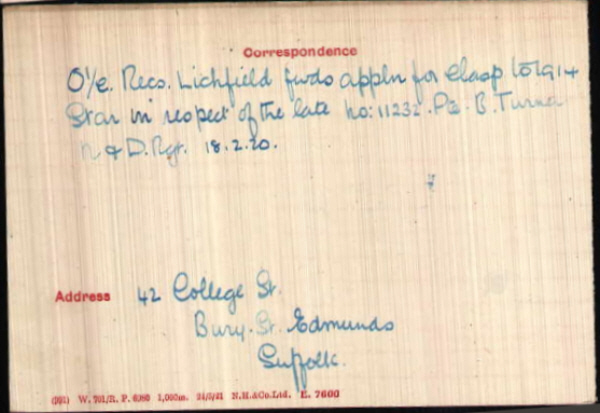 Correspondence
O i/c. Recs. Lichfield fwds appln for Clasp to 1914
Star in respect of the late No: 11232. Pte. B. Turner
N & D. Rgt. 18.2.20.
Address 42 College St.
Bury. St. Edmunds
Suffolk.
W. 701/R. P. 6360 1,000m. N.H.&Co.Ltd. E. 7600